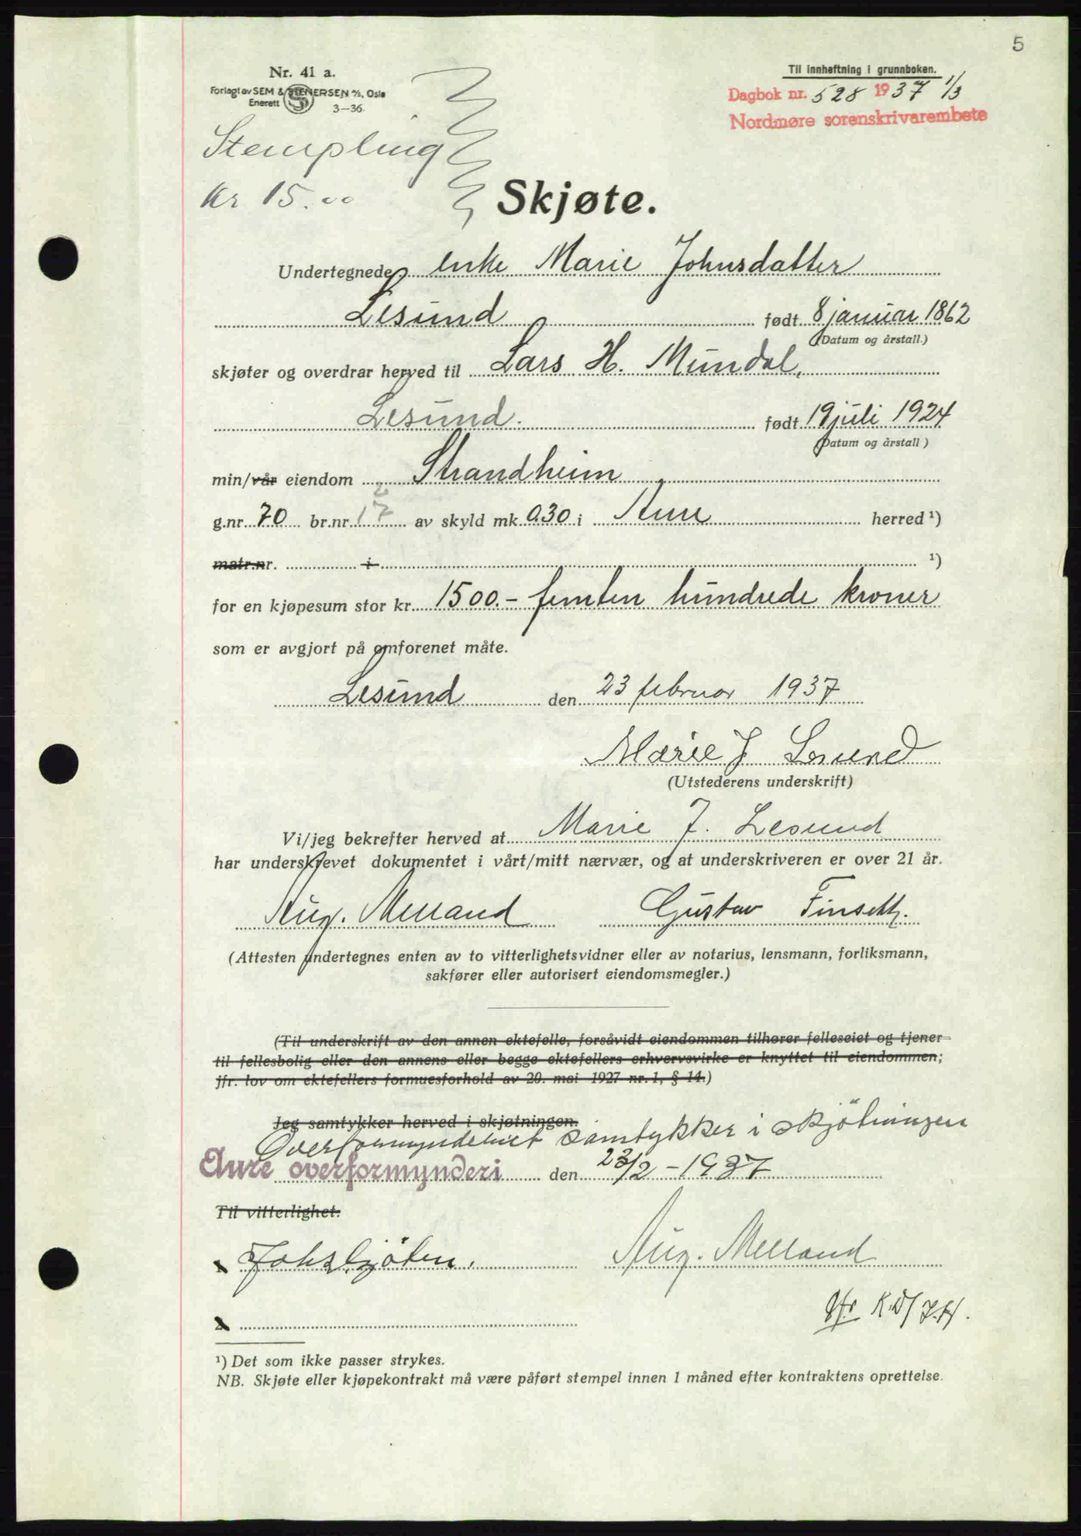 5
Nr. 41 a.
Forlagt av SEM & STENERSEN A/S, Oslo
Enerett 3-36
Til innheftning i grunnboken.
Dagbok nr. 528 1937 1/3
Nordmøre sorenskrivarembete
Stempling
Kr 15.00
Skjøte.
Undertegnede enke Marie Johnsdatter
Lesund født 8 januar 1862
(Datum og årstall.)
skjøter og overdrar herved til Lars H. Mundal,
Lesund. født 19 juli 1924
(Datum og årstall)
min/vår eiendom Strandheim
g.nr. 70 br.nr. 17 av skyld mk. 0.30 i Aure herred ¹)
matr.nr. i ¹)
for en kjøpesum stor kr. 1500.- femten hundrede kroner
som er avgjort på omforenet måte.
Lesund den 23 februar 1937
Marie J Lesund
(Utstederens underskrift)
Vi/jeg bekrefter herved at Marie J. Lesund
har underskrevet dokumentet i vårt/mitt nærvær, og at underskriveren er over 21 år.
Aug. Melland Gustav Finseth.
(Attesten undertegnes enten av to vitterlighetsvidner eller av notarius, lensmann, forliksmann,
sakfører eller autorisert eiendomsmegler.)
(Til underskrift av den annen ektefelle, forsåvidt eiendommen tilhører felleseiet og tjener
til fellesbolig eller den annens eller begge ektefellers erhvervsvirke er knyttet til eiendommen;
jfr. lov om ektefellers formuesforhold av 20. mai 1927 nr. 1, § 14.)
Jeg samtykker herved i skjøtningen.
Overformynderiet samtykker i skjötningen
Aure overformynderi den 23/2 - 1937
Til vitterlighet:
1 Aug. Melland
2
¹) Det som ikke passer strykes.
NB. Skjøte eller kjøpekontrakt må være påført stempel innen 1 måned efter kontraktens oprettelse.